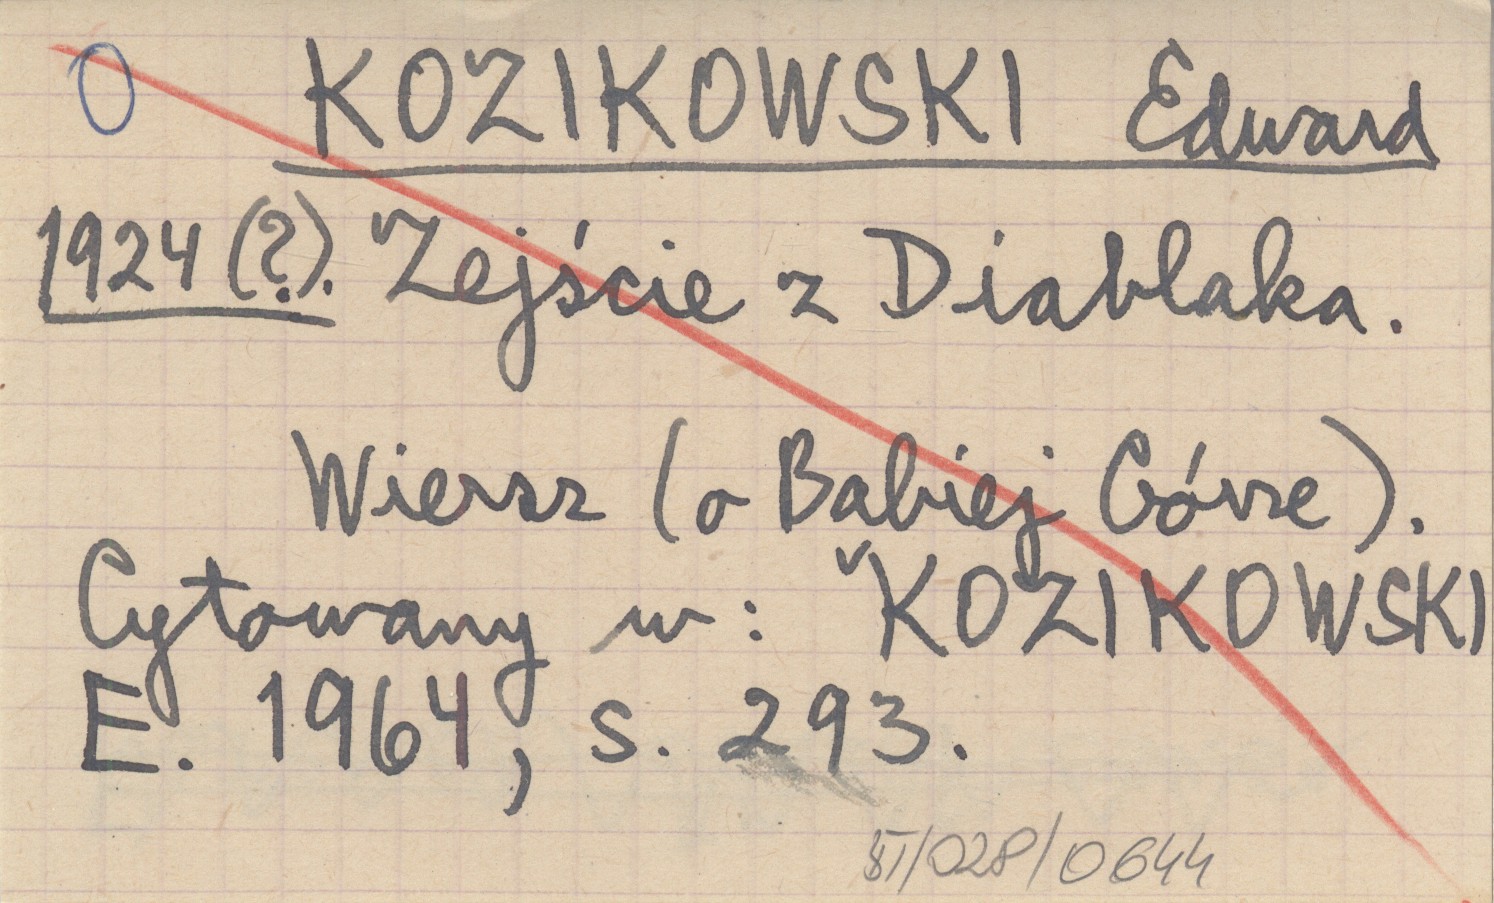 0 KOZIKOWSKI Edward
1924 (?). Zejście z Diablaka.
Wiersz (o Babiej Górze).
Cytowany w: KOZIKOWSKI
E. 1964, s. 293.
/028/0644